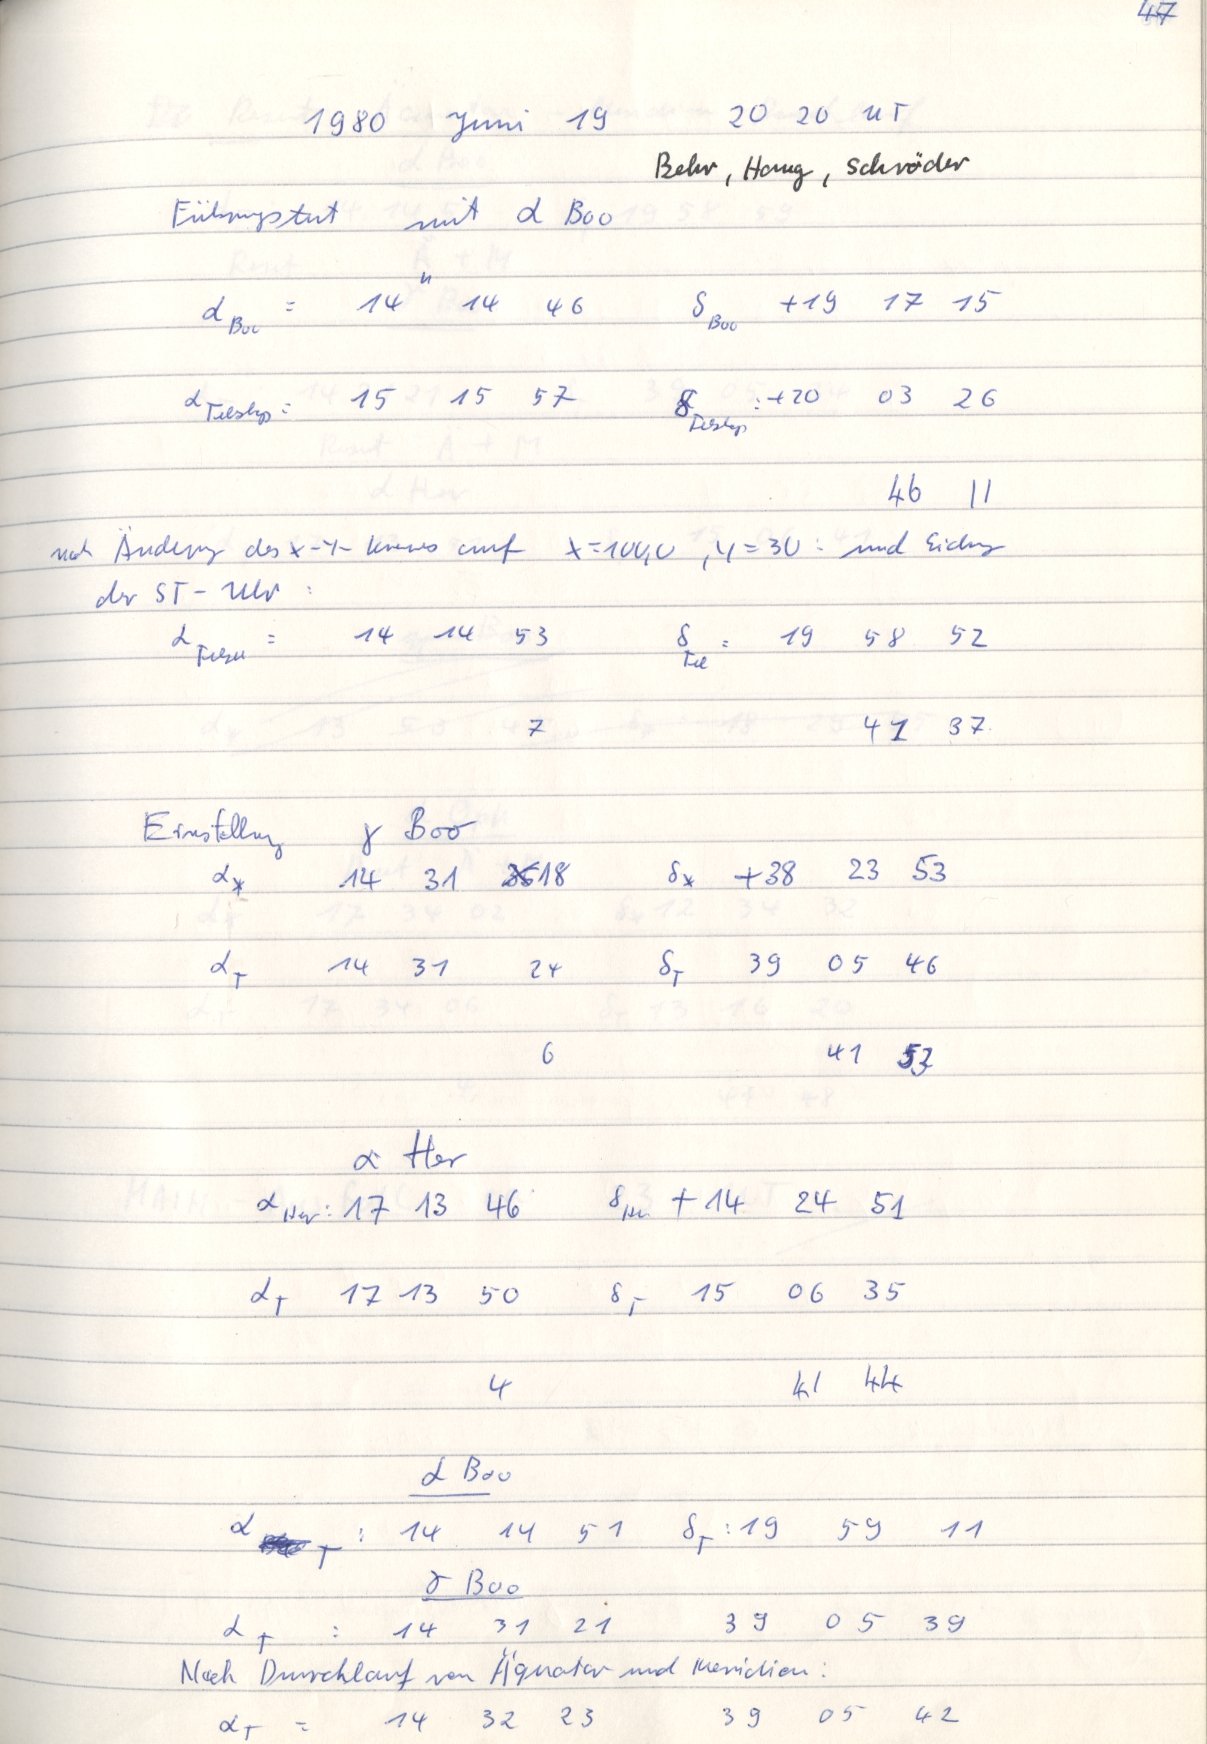 47
1980 Juni 19 20 20 UT
Behr, Haug, Schröder
Führungstest mit α Boo
α Boo = 14 h 14 46 δ Boo +19 17 15
α Teleskop = 15 15 57 δ Teleskop : +20 03 26
46 11
nach Änderung des x-y- Kreuzes auf x=100,0 , y=30 : und Eichung
der ST-Uhr :
α = 14 14 53 δ Tel = 19 58 52
7 41 37
Einstellung γ Boo
α * 14 31 18 δ * +38 23 53
α T 14 31 24 δ T 39 05 46
6 41 53
α Her
α Her : 17 13 46 δ Her +14 24 51
α T 17 13 50 δ T 15 06 35
4 41 44
α Boo
α T : 14 14 51 δ T : 19 59 11
γ Boo
α T : 14 31 21 39 05 39
Nach Durchlauf von Äquator und Meridian :
α T = 14 32 23 39 05 42